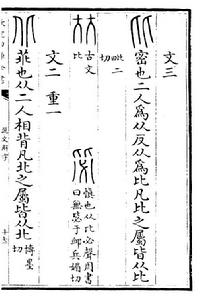 文三
比 密也二人爲从反从爲比凡比之屬皆从比
毗二切
古文比
毖 慎也从比必聲周書
曰無毖于卹兵媚切
文二 重一
北 乖也从二人相背凡北之屬皆从北
博墨切
說文解字